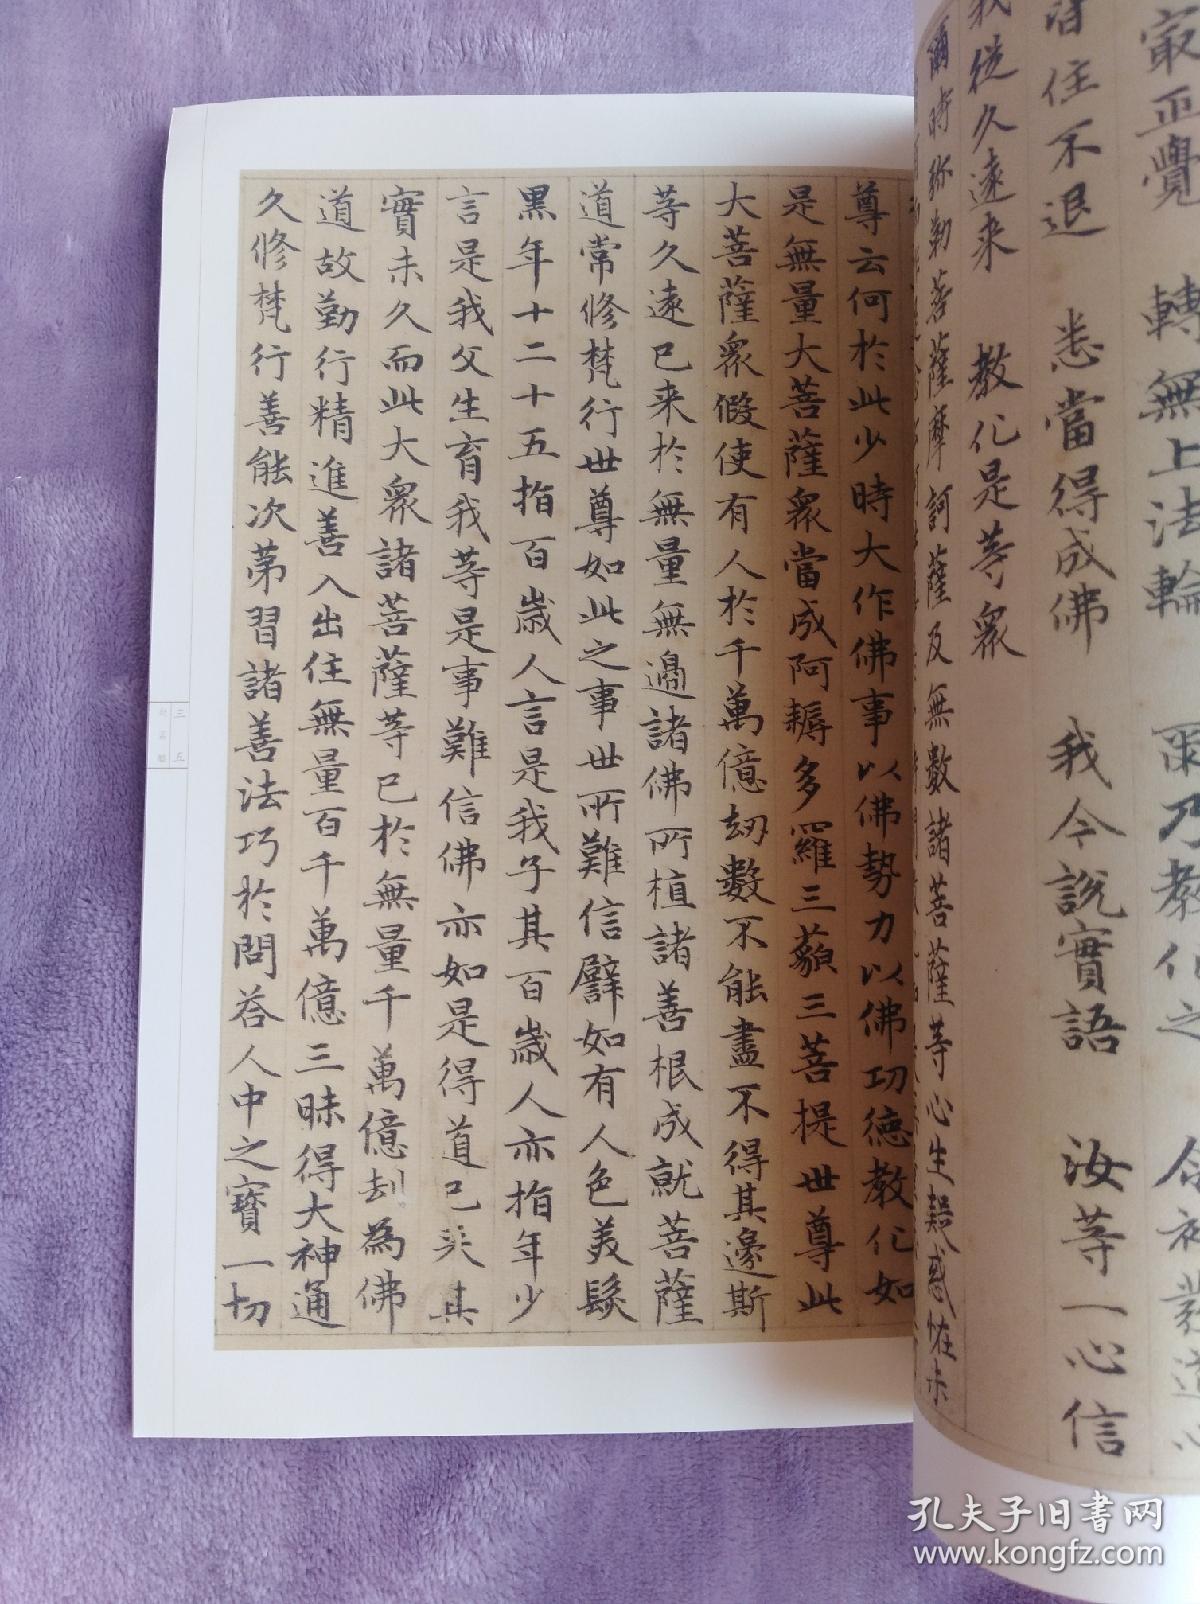 最正覺 轉無上法輪 爾乃教化之 令初發道心
皆住不退 悉當得成佛 我今說實語 汝等一心信
我從久遠来 教化是等衆
爾時弥勒菩薩摩訶薩及無數諸菩薩等心生疑惑恠未
尊云何扵此少時大作佛事以佛勢力以佛功德教化如
是無量大菩薩衆當成阿耨多羅三藐三菩提世尊此
大菩薩衆假使有人扵千萬億劫數不能盡不得其邊斯
等久遠已来扵無量無邊諸佛所植諸善根成就菩薩
道常修梵行世尊如此之事世所難信譬如有人色美髮
黑年十二十五指百歲人言是我子其百歲人亦指年少
言是我父生育我等是事難信佛亦如是得道已来其
實未久而此大衆諸菩薩等已扵無量千萬億劫為佛
道故勤行精進善入出住無量百千萬億三昧得大神通
久修梵行善能次第習諸善法巧扵問荅人中之寶一切
三五
孔夫子旧书网
www.kongfz.com